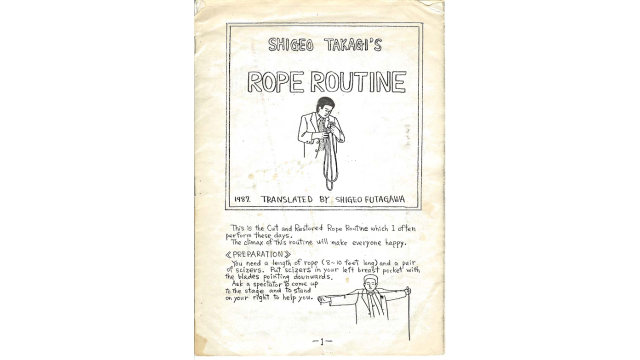 SHIGEO TAKAGI'S
ROPE ROUTINE
1982 TRANSLATED BY SHIGEO FUTAGAWA
This is the Cut and Restored Rope Routine which I often
perform these days.
The climax of this routine will make everyone happy.
《PREPARATION》
You need a length of rope (8~10 feet long) and a pair
of scizers. Put scizers in your left breast pocket with
the blades pointing downwards.
Ask a spectator to come up
to the stage and to stand
on your right to help you.
—1—